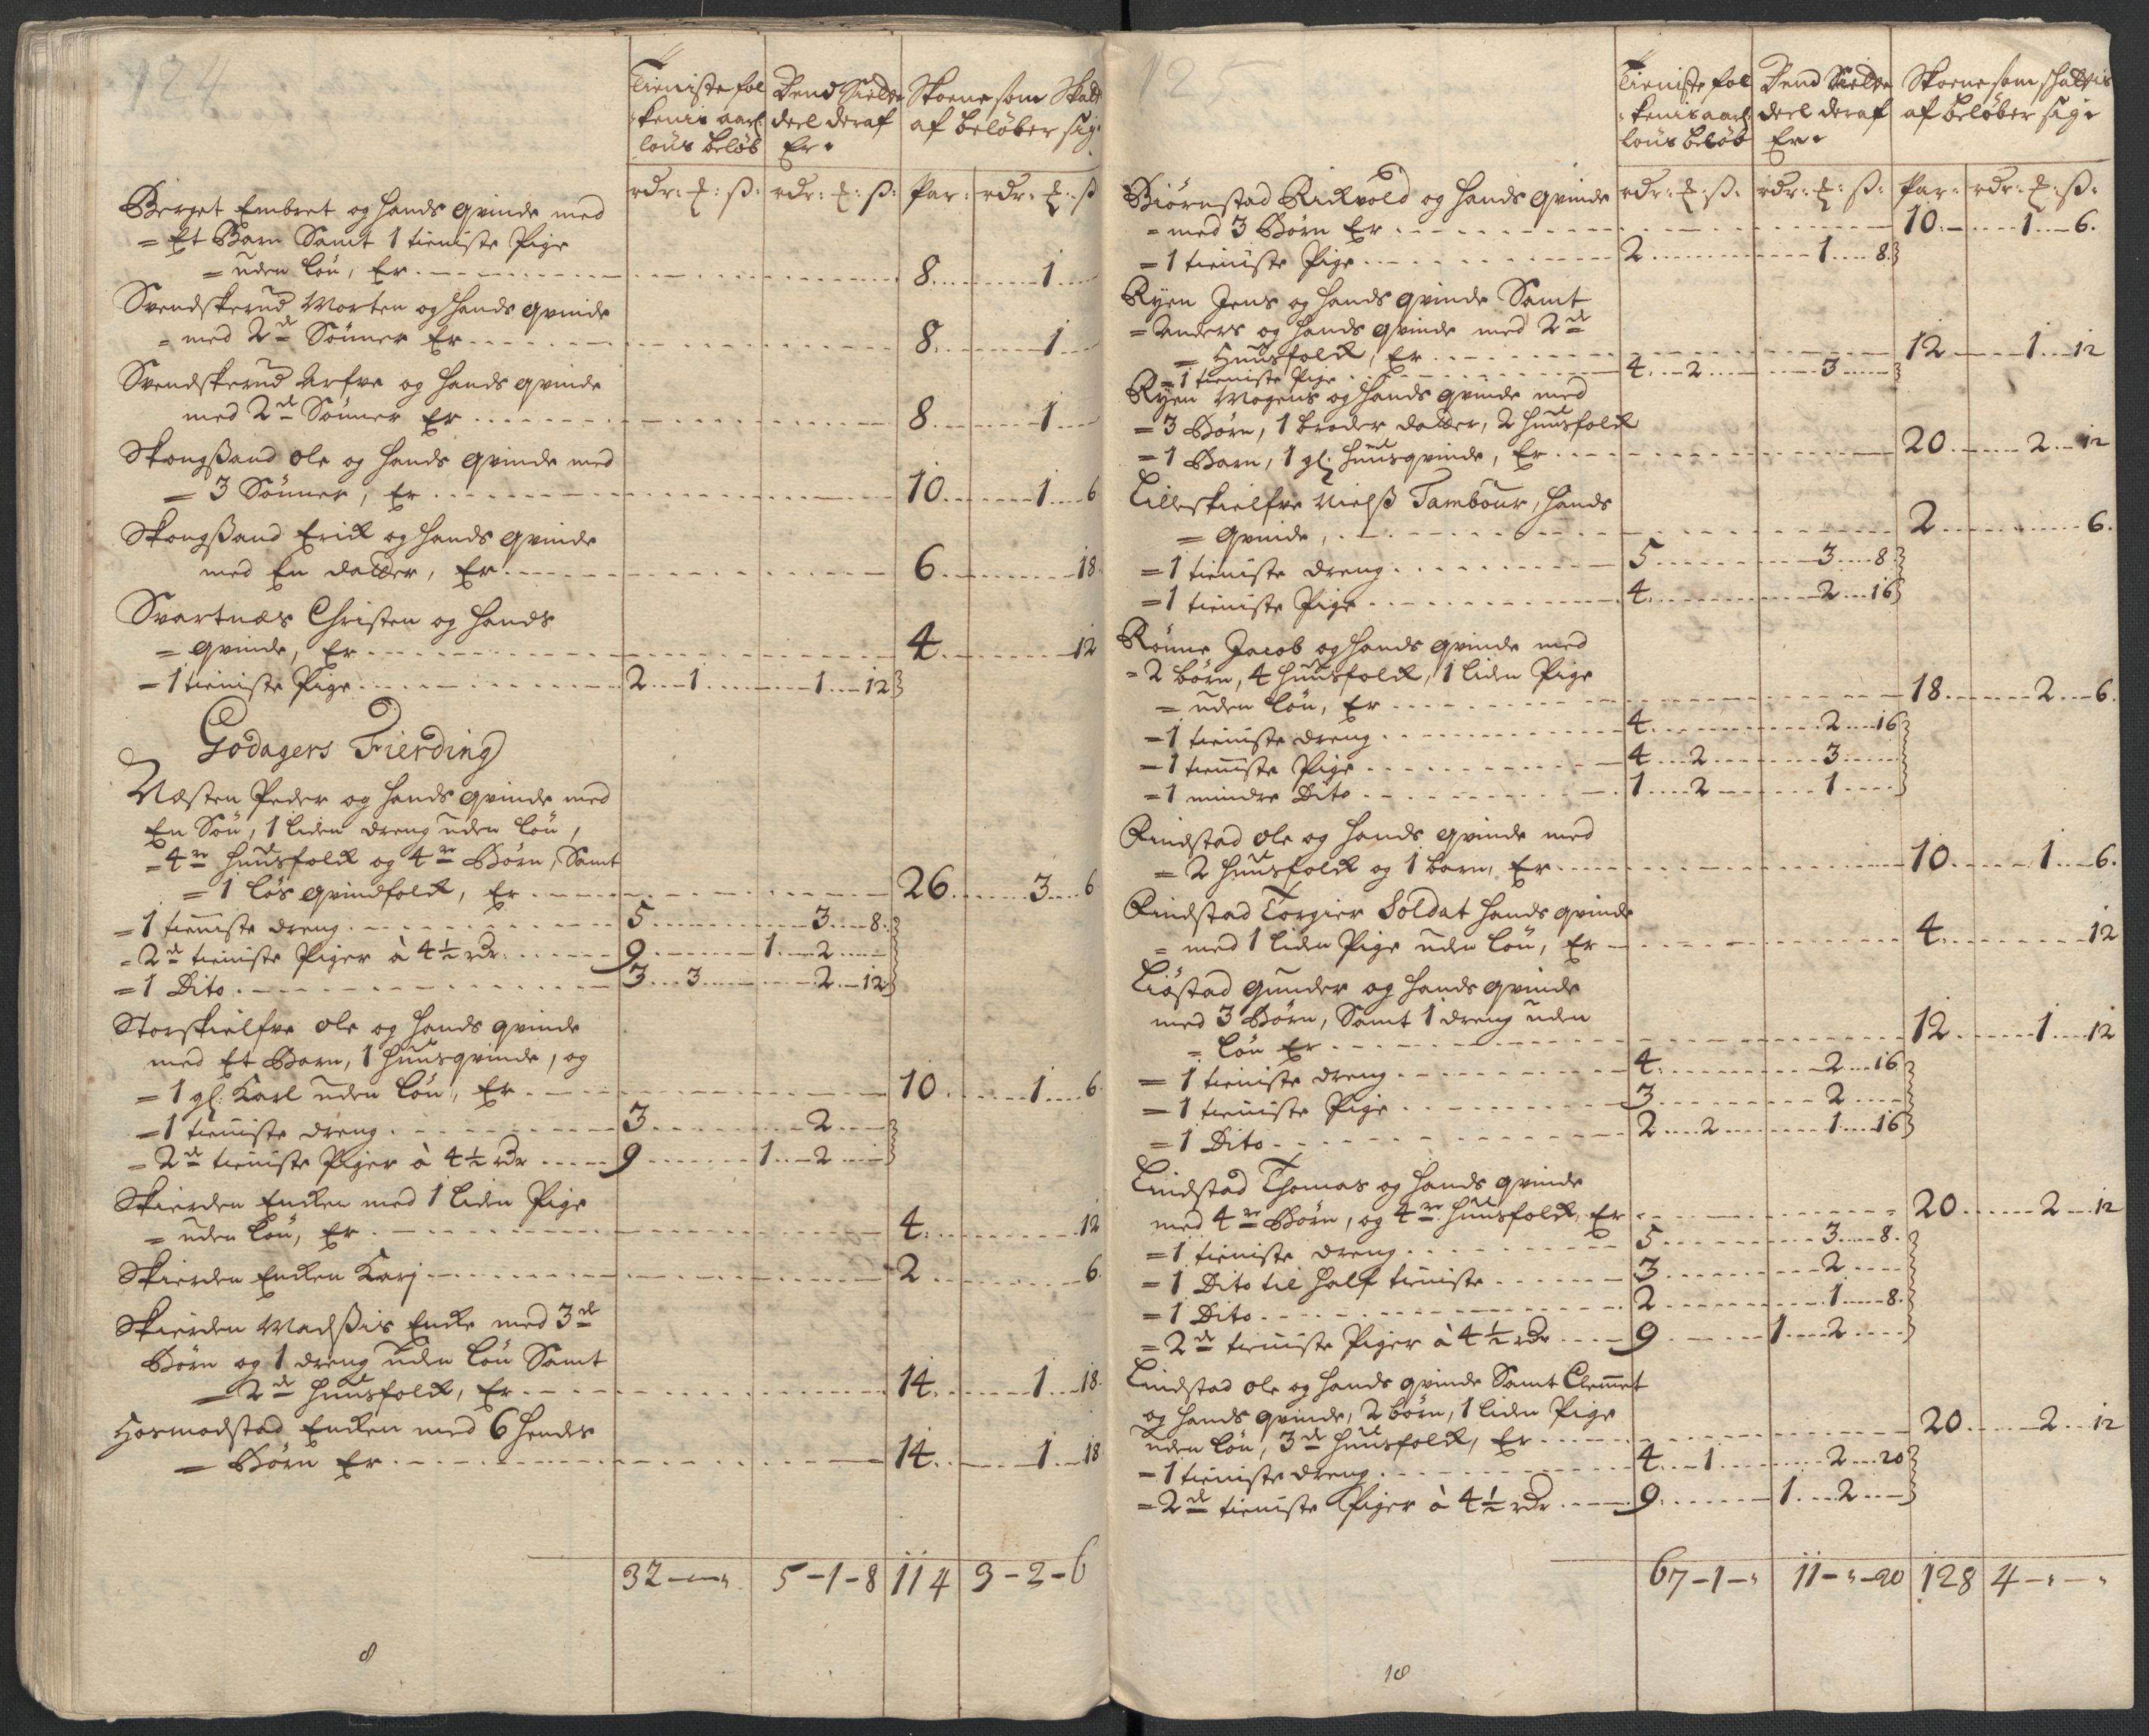 124
Tieniste fol
kenis aarl:
löns beløb
Dend Siette
deel deraf
Er.
Skoene som Skatt
af beløber sig.
rdr: ʒ: ß:
rdr: ʒ: ß:
Par:
rdr: ʒ: ß
Berget Embret og hands qvinde med
= Et Barn Samt 1 tieniste Pige
= uden lön, Er 8 1
Svendskerud Morten og hands qvinde
= med 2de Sönner Er 8 1
Svendskerud Arfve og hands qvinde
med 2de Sönner Er 8 1
Skongßand ole og hands qvinde med
= 3 Sönner, Er 10 1 6
Skongßand Erick og hands qvinde
med En datter, Er 6 18
Svartnæs Christen og hands
= qvinde, Er 4 12
= 1 tieniste Pige 2 1 1 12
Godagers Fierding
Næsten Peder og hands qvinde med
En Sön, 1 liden dreng uden lön,
= 4re huusfolck og 4re Börn, Samt
= 1 lös qvindfolck, Er 26 3 6
= 1 tieniste dreng 5 3 8
= 2de tieniste Piger à 4½ rdr: 9 1 2
= 1 Dito 3 3 2 12
Storskielfve ole og hands qvinde
med Et Barn, 1 huusqvinde, og
= 1 gl: Karl uden lön, Er 10 1 6
= 1 tieniste dreng 3 2
= 2de tieniste Piger à 4½ rdr 9 1 2
Skierden Encken med 1 liden Pige
= uden lön, Er 4 12
Skierden Encken Karj 2 6
Skierden Madßis Encke med 3de
Börn og 1 dreng uden lön Samt
= 2de huusfolck, Er 14 1 18
Hormodstad Encken med 6 hendes
= Börn Er 14 1 18
32 - - 5 - 1 - 8 114 3 - 2 - 6
8
125
Tieniste fol
kenis aarl
löns beløb
Dend Siette
deel deraf
Er.
Skoene som schattis
af beløber sig.
rdr: ʒ: ß:
rdr: ʒ: ß:
Par:
rdr: ʒ: ß:
Biörnstad Rickvold og hands qvinde
= med 3 Börn Er 10 1 6
= 1 tieniste Pige 2 1 8
Ryen Jens og hands qvinde Samt
= Anders og hands qvinde med 2de
= Huusfolck, Er 12 1 12
= 1 tieniste Pige 4 2 3
Ryen Mogens og hands qvinde med
= 3 Börn, 1 broder datter, 2 huusfolck
= 1 Barn, 1 gl: huusqvinde, Er 20 2 12
Lilleskielfve Nielß Tambour, hands
= qvinde, 2 6
= 1 tieniste dreng 5 3 8
= 1 tieniste Pige 4 2 16
Rönne Jacob og hands qvinde med
= 2 börn, 4 huusfolck, 1 liden Pige
= uden lön, Er 18 2 6
= 1 tieniste dreng 4 2 16
= 1 tieniste Pige 4 2 3
= 1 mindre Dito 1 2 1
Rindstad ole og hands qvinde med
= 2 huusfolck og 1 barn, Er 10 1 6
Rindstad Torgier Soldat hands qvinde
= med 1 liden Pige uden lön, Er 4 12
Liöstad gunder og hands qvinde
med 3 Börn, Samt 1 dreng uden
= lön Er 12 1 12
= 1 tieniste dreng 4 2 16
= 1 tieniste Pige 3 2
= 1 Dito 2 2 1 16
Lindstad Thomas og hands qvinde
med 4re Börn, og 4re huusfolck, Er 20 2 12
= 1 tieniste dreng 5 3 8
= 1 Dito til half tieniste 3 2
= 1 Dito 2 1 8
= 2de tieniste Piger à 4½ rdr 9 1 2
Lindstad ole og hands qvinde Samt Clemet
og hands qvinde, 2 börn, 1 liden Pige
uden lön, 3de huusfolck, Er 20 2 12
= 1 tieniste dreng 4 1 2 20
= 2de tieniste Piger à 4½ rdr 9 1 2
67 - 1 - 11 - - 20 128 4 - -
10